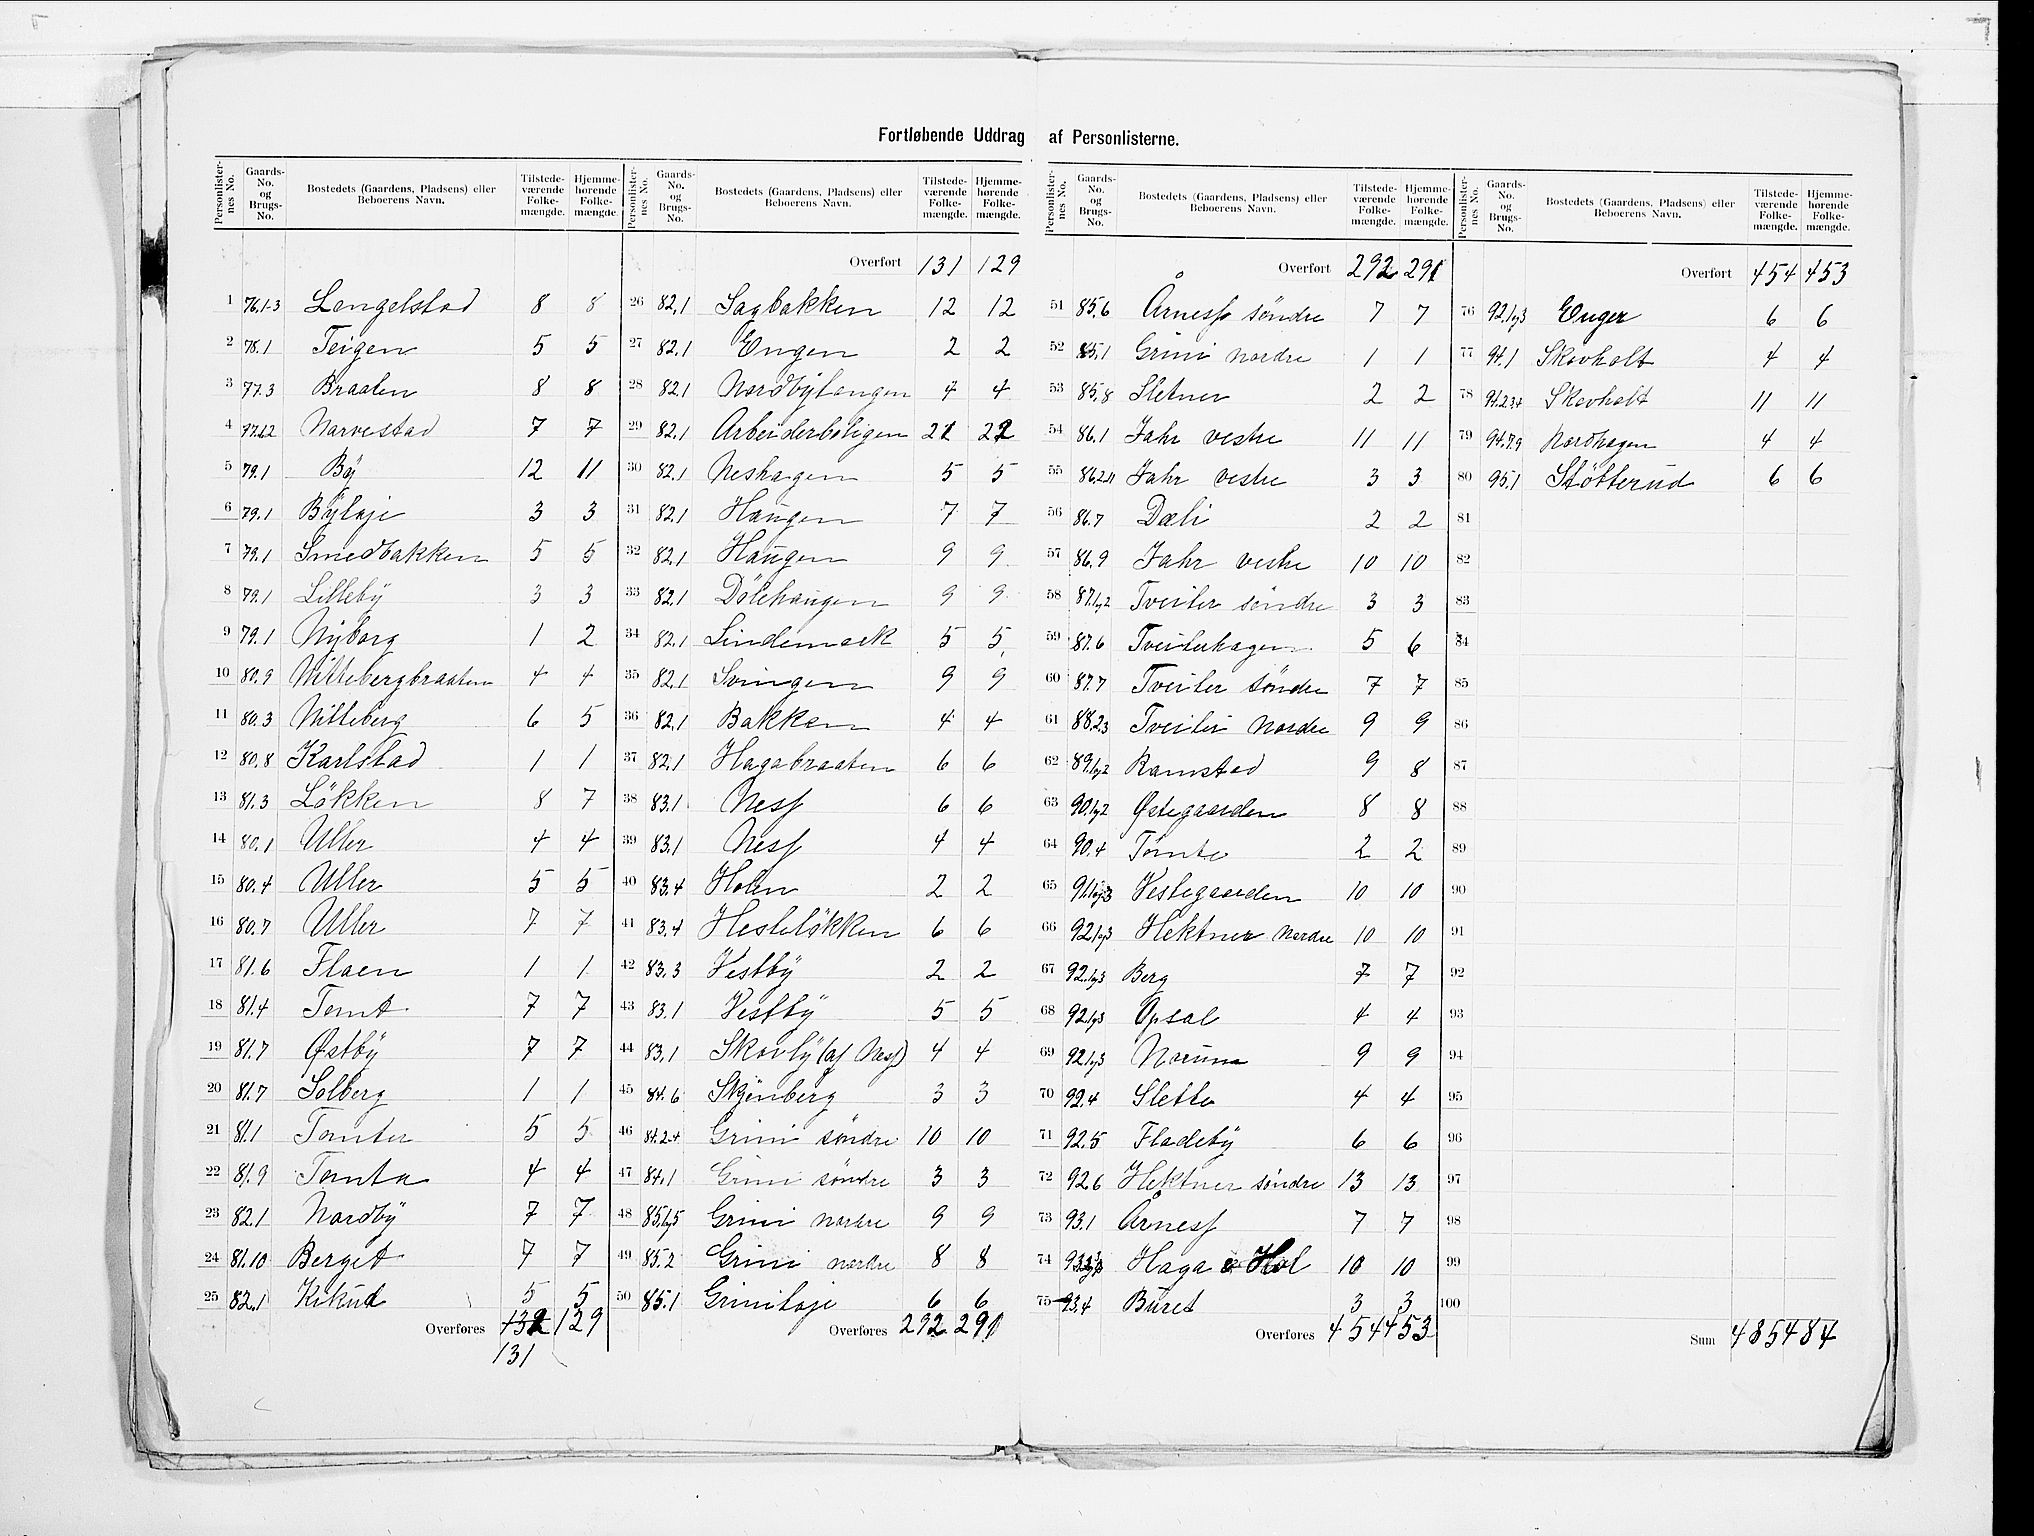 Fortløbende Uddrag af Personlisterne.
Personlister-nes No. Gaards-No. og Brugs-No. Bostedets (Gaardens, Pladsens) eller Beboerens Navn. Tilstede-værende Folke-mængde. Hjemme-hørende Folke-mængde.
1 76.1-3 Lengelstad 8 8
2 78.1 Teigen 5 5
3 77.3 Braaten 8 8
4 77.1.2 Narvestad 7 7
5 79.1 By 12 11
6 79.1 Byløje 3 3
7 79.1 Smedbakken 5 5
8 79.1 Lilleby 3 3
9 79.1 Nyborg 1 2
10 80.9 Nittebergbraaten 4 4
11 80.3 Nitteberg 6 5
12 80.8 Karlstad 1 1
13 81.3 Løkken 8 7
14 80.1 Uller 4 4
15 80.4 Uller 5 5
16 80.7 Uller 7 7
17 81.6 Flaen 1 1
18 81.4 Tomt 7 7
19 81.7 Østby 7 7
20 81.7 Solberg 1 1
21 81.1 Tomter 5 5
22 81.9 Tomta 4 4
23 82.1 Nordby 7 7
24 81.10 Berget 7 7
25 82.1 Kikud 5 5
Overføres 132 129
131
Personlister-nes No. Gaards-No. og Brugs-No. Bostedets (Gaardens, Pladsens) eller Beboerens Navn. Tilstede-værende Folke-mængde. Hjemme-hørende Folke-mængde.
Overført 131 129
26 82.1 Sagbakken 12 12
27 82.1 Engen 2 2
28 82.1 Nordbytangen 4 4
29 82.1 Arbeiderboligen 21 22
30 82.1 Neshagen 5 5
31 82.1 Haugen 7 7
32 82.1 Haugen 9 9
33 82.1 Dølehaugen 9 9
34 82.1 Lindemark 5 5
35 82.1 Svingen 9 9
36 82.1 Bakken 4 4
37 82.1 Hagabraaten 6 6
38 83.1 Ness 6 6
39 83.1 Ness 4 4
40 83.4 Holen 2 2
41 83.4 Hesteløkken 6 6
42 83.3 Vestby 2 2
43 83.1 Vestby 5 5
44 83.1 Skovly (af Ness) 4 4
45 84.6 Skjønberg 3 3
46 84.2.4 Grini søndre 10 10
47 84.1 Grini søndre 3 3
48 85.1og5 Grini nordre 9 9
49 85.2 Grini nordre 8 8
50 85.1 Griniløje 6 6
Overføres 292 291
Personlister-nes No. Gaards-No. og Brugs-No. Bostedets (Gaardens, Pladsens) eller Beboerens Navn. Tilstede-værende Folke-mængde. Hjemme-hørende Folke-mængde.
Overført 292 291
51 85.6 Årness søndre 7 7
52 85.1 Grini nordre 1 1
53 85.8 Sletner 2 2
54 86.1 Jahr vestre 11 11
55 86.2.11 Jahr vestre 3 3
56 86.7 Dæli 2 2
57 86.9 Jahr vestre 10 10
58 87.1og2 Tveiter søndre 3 3
59 87.6 Tveiterhagen 5 6
60 87.7 Tveiter søndre 7 7
61 88.2.3 Tveiter Nordre 9 9
62 89.1og2 Ramstad 9 8
63 90.1og2 Østegaarden 8 8
64 90.4 Tomte 2 2
65 91.1og3 Vestegaarden 10 10
66 92.1og3 Hektner Nordre 10 10
67 92.1og3 Berg 7 7
68 92.1og3 Opsal 4 4
69 92.1og3 Norum 9 9
70 92.4 Sletta 4 4
71 92.5 Fladeby 6 6
72 92.6 Hektner søndre 13 13
73 93.1 Årness 7 7
74 Haga o Hol 10 10
75 93.4 Buret 3 3
Overføres 454 453
Personlister-nes No. Gaards-No. og Brugs-No. Bostedets (Gaardens, Pladsens) eller Beboerens Navn. Tilstede-værende Folke-mængde. Hjemme-hørende Folke-mængde.
Overført 454 453
76 92.1og3 Enger 6 6
77 94.1 Skovholt 4 4
78 94.2.3.4 Skovholt 11 11
79 94.7.9 Nordhagen 4 4
80 95.1 Støtterud 6 6
81
82
83
84
85
86
87
88
89
90
91
92
93
94
95
96
97
98
99
100
Sum 485 484